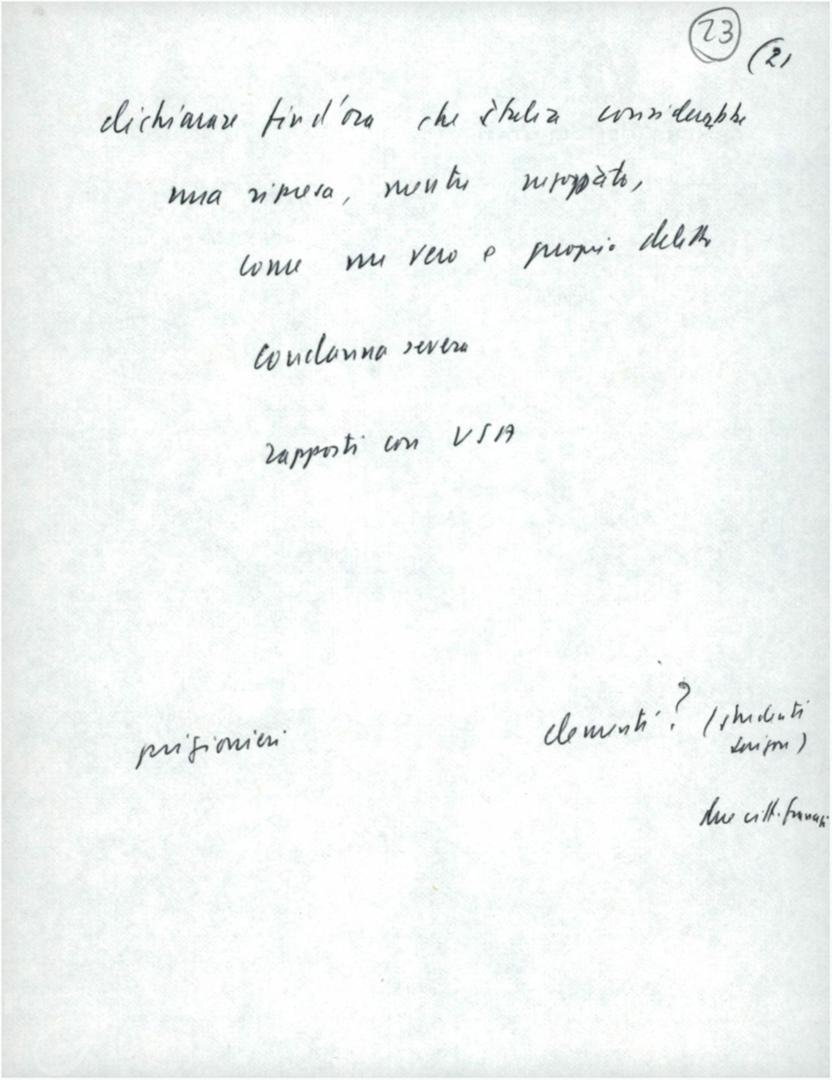 23
(2)
dichiarare fin d'ora che Italia considerebbe
una ripresa, mentre negoziato,
come un vero e proprio delitto
condanna severa
rapporti con USA
prigionieri
elementi? (studenti
Saigon)
due citt. francesi